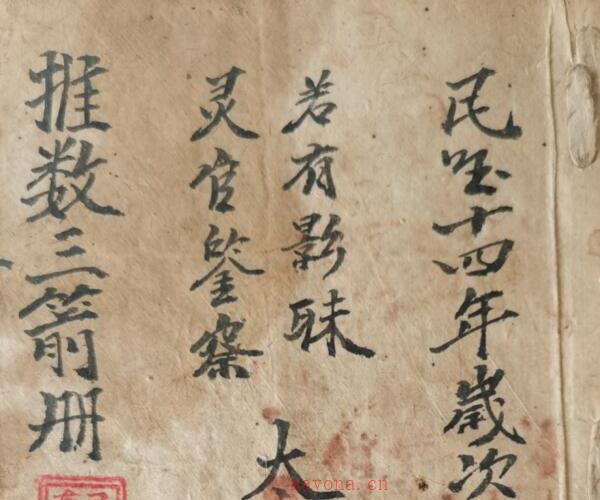 民国十四年歲次
若有影昧
大
灵官鉴察
推数三箭册
savona.cn